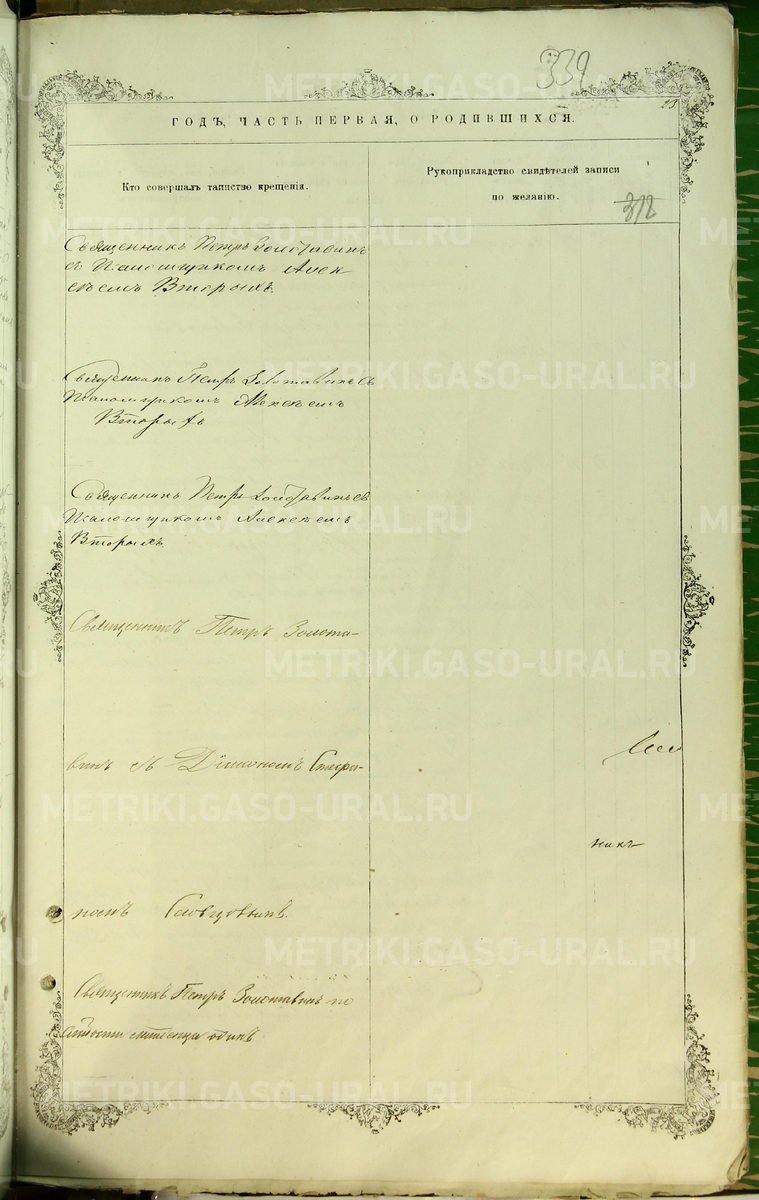 339
ГОДЪ, ЧАСТЬ ПЕРВАЯ, О РОДИВШИХСЯ.
Кто совершалъ таинство крещенія.
Рукоприкладство свидѣтелей записи
по желанію.
312
Священникъ Петръ Золотавинъ
съ Псаломщикомъ Алек
сѣемъ Вторыхъ.
Священникъ Петръ Золотавинъ съ
Псаломщикомъ Алексѣемъ
Вторыхъ
Священникъ Петръ Золотавинъ съ
Псаломщикомъ Алексѣемъ
Вторыхъ.
Священникъ Петръ Золота-
винъ съ Діакономъ
никъ
Словцовымъ.
Священникъ Петръ Золотавинъ по
слабости младенца одинъ
METRIKI.GASO-URAL.RU